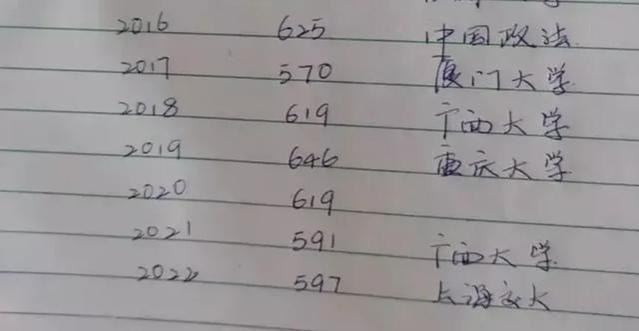 2016 625 中国政法
2017 570 厦门大学
2018 619 广西大学
2019 646 重庆大学
2020 619
2021 591 广西大学
2022 597 上海交大